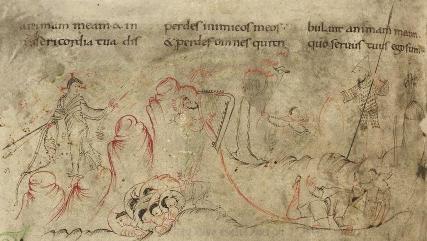 animam meam & in
misericordia tua dis
perdes inimicos meos
& perdes omnes qui tri
bulant animam meam
servus tuus ego sum